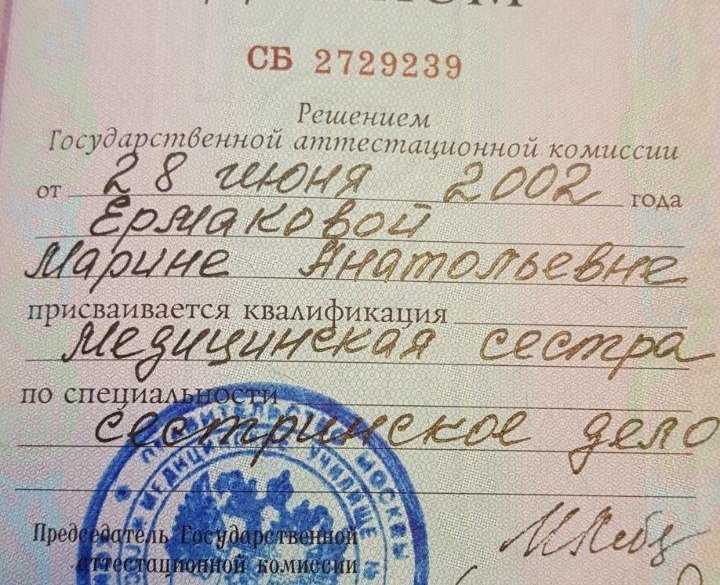 СБ 2729239
Решением
Государственной аттестационной комиссии
от 28 июня 2002 года
Ермаковой
Марине Анатольевне
присваивается квалификация
Медицинская сестра
по специальности
сестринское дело
Председатель Государственной
аттестационной комиссии
ПРАВИТЕЛЬСТВО МОСКВЫ
МЕДИЦИНСКОЕ УЧИЛИЩЕ №